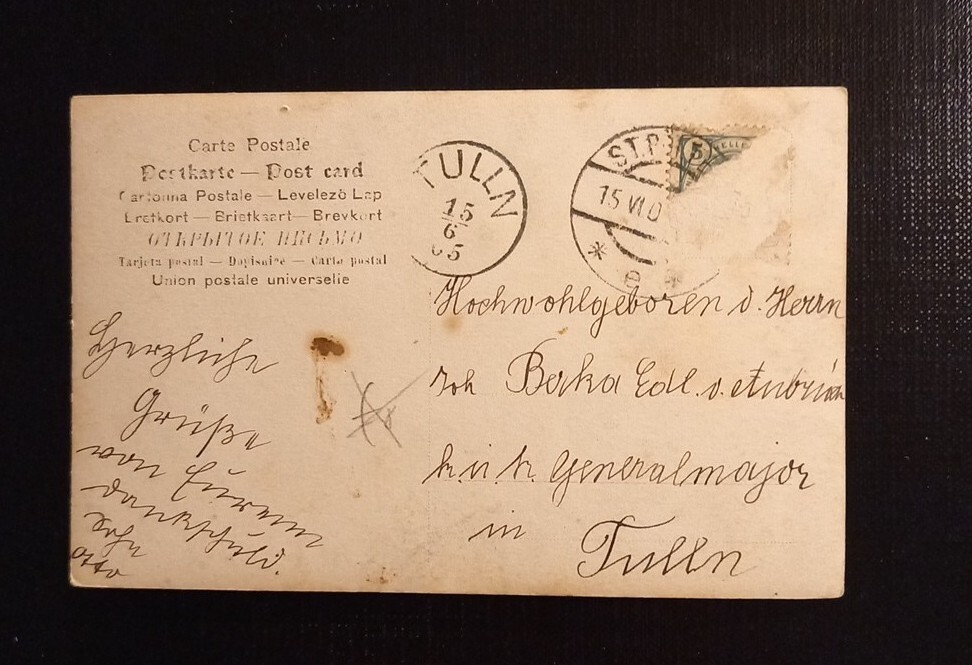 Carte Postale
Postkarte — Post card
Cartolina Postale — Levelező Lap
Bretkort — Briefkaart — Brevkort
ОТКРЫТОЕ ПИСЬМО
Tarjeta postal — Dopisnice — Carta postal
Union postale universelle
TULLN
15
6
05
ST.P
15 VI 0
* e *
5
HELLE
Hochwohlgeboren d. Herrn
Joh Berka Edl. v.
k. u. k. Generalmajor
in
Tulln
Herzliche
Grüße
von Eurem
dankschuld.
Sohn
Otto